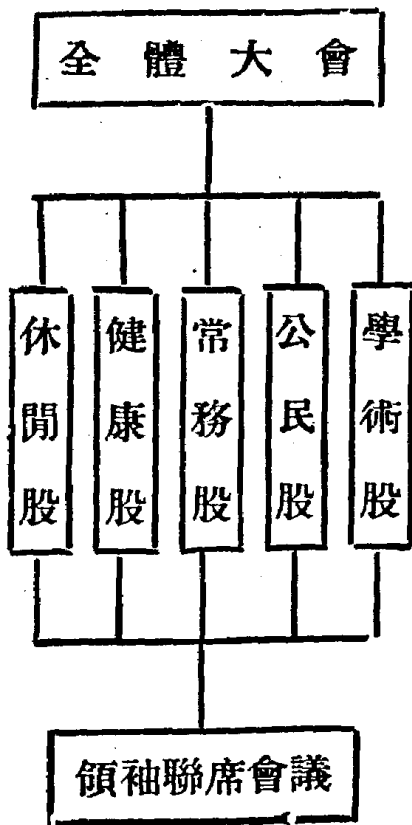 全體大會
休閒股
健康股
常務股
公民股
學術股
領袖聯席會議